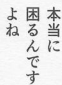 本当に
困るんです
よね